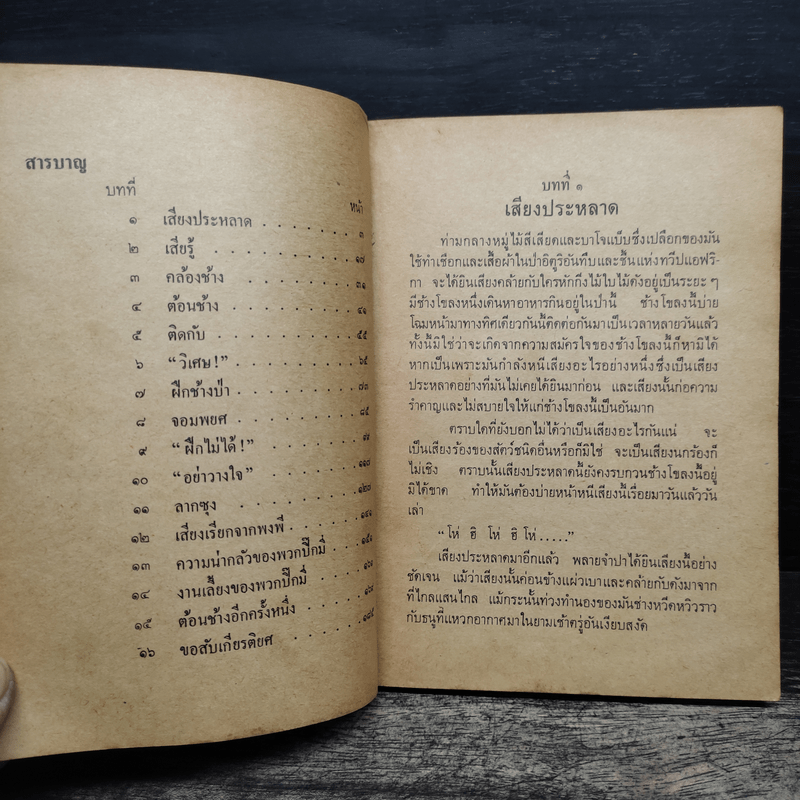 สารบาญ
บทที่
หน้า
๑ เสียงประหลาด ๓
๒ เสียรู้ ๑๗
๓ คล้องช้าง ๓๑
๔ ต้อนช้าง ๔๑
๕ ติดกับ ๕๕
๖ “วิเศษ!” ๖๕
๗ ฝึกช้างป่า ๗๓
๘ จอมพยศ ๘๕
๙ “ฝึกไม่ได้!”
๑๐ “อย่าวางใจ”
๑๑ ลากซุง
๑๒ เสียงเรียกจากพงพี
๑๓ ความน่ากลัวของพวกปิ๊กมี่
๑๔ งานเลี้ยงของพวกปิ๊กมี่
๑๕ ต้อนช้างอีกครั้งหนึ่ง
๑๖ ขอสับเกียรติยศ
บทที่ ๑
เสียงประหลาด
ท่ามกลางหมู่ไม้สีเสียดและบาโจแบ๊บซึ่งเปลือกของมัน
ใช้ทำเชือกและเสื้อผ้าในป่าอิตูริอันทึบและชื้นแห่งทวีปแอฟริ-
กา จะได้ยินเสียงคล้ายกับใครหักกิ่งไม้ใบไม้ดังอยู่เป็นระยะ ๆ
มีช้างโขลงหนึ่งเดินหาอาหารกินอยู่ในป่านี้ ช้างโขลงนี้บ่าย
โฉมหน้ามาทางทิศเดียวกันนี้ติดต่อกันมาเป็นเวลาหลายวันแล้ว
ทั้งนี้มิใช่ว่าจะเกิดจากความสมัครใจของช้างโขลงนี้ก็หามิได้
หากเป็นเพราะมันกำลังหนีเสียงอะไรอย่างหนึ่งซึ่งเป็นเสียง
ประหลาดอย่างที่มันไม่เคยได้ยินมาก่อน และเสียงนั้นก่อความ
รำคาญและไม่สบายใจให้แก่ช้างโขลงนี้เป็นอันมาก
ตราบใดที่ยังบอกไม่ได้ว่าเป็นเสียงอะไรกันแน่ จะ
เป็นเสียงร้องของสัตว์ชนิดอื่นหรือก็มิใช่ จะเป็นเสียงนกร้องก็
ไม่เชิง ตราบนั้นเสียงประหลาดนี้ยังคงรบกวนช้างโขลงนี้อยู่
มิได้ขาด ทำให้มันต้องบ่ายหน้าหนีเสียงนี้เรื่อยมาวันแล้ววัน
เล่า
“โห่ ฮิ โห่ ฮิ โห่.....”
เสียงประหลาดมาอีกแล้ว พลายจำปาได้ยินเสียงนี้อย่าง
ชัดเจน แม้ว่าเสียงนั้นค่อนข้างแผ่วเบาและคล้ายกับดังมาจาก
ที่ไกลแสนไกล แม้กระนั้นท่วงทำนองของมันช่างหวีดหวิวราว
กับธนูที่แหวกอากาศมาในยามเช้าตรู่อันเงียบสงัด